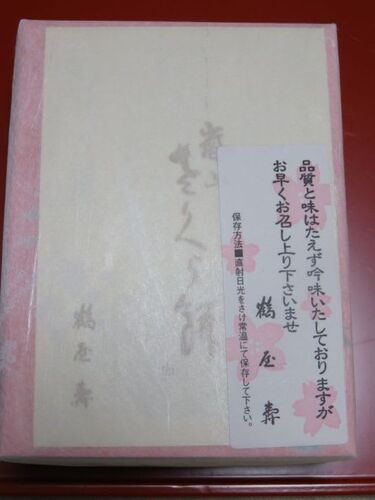 品質と味はたえず吟味いたしておりますが
お早くお召し上り下さいませ
鶴屋壽
保存方法■直射日光をさけ常温にて保存して下さい。
嵐山
さくら餅
鶴屋壽